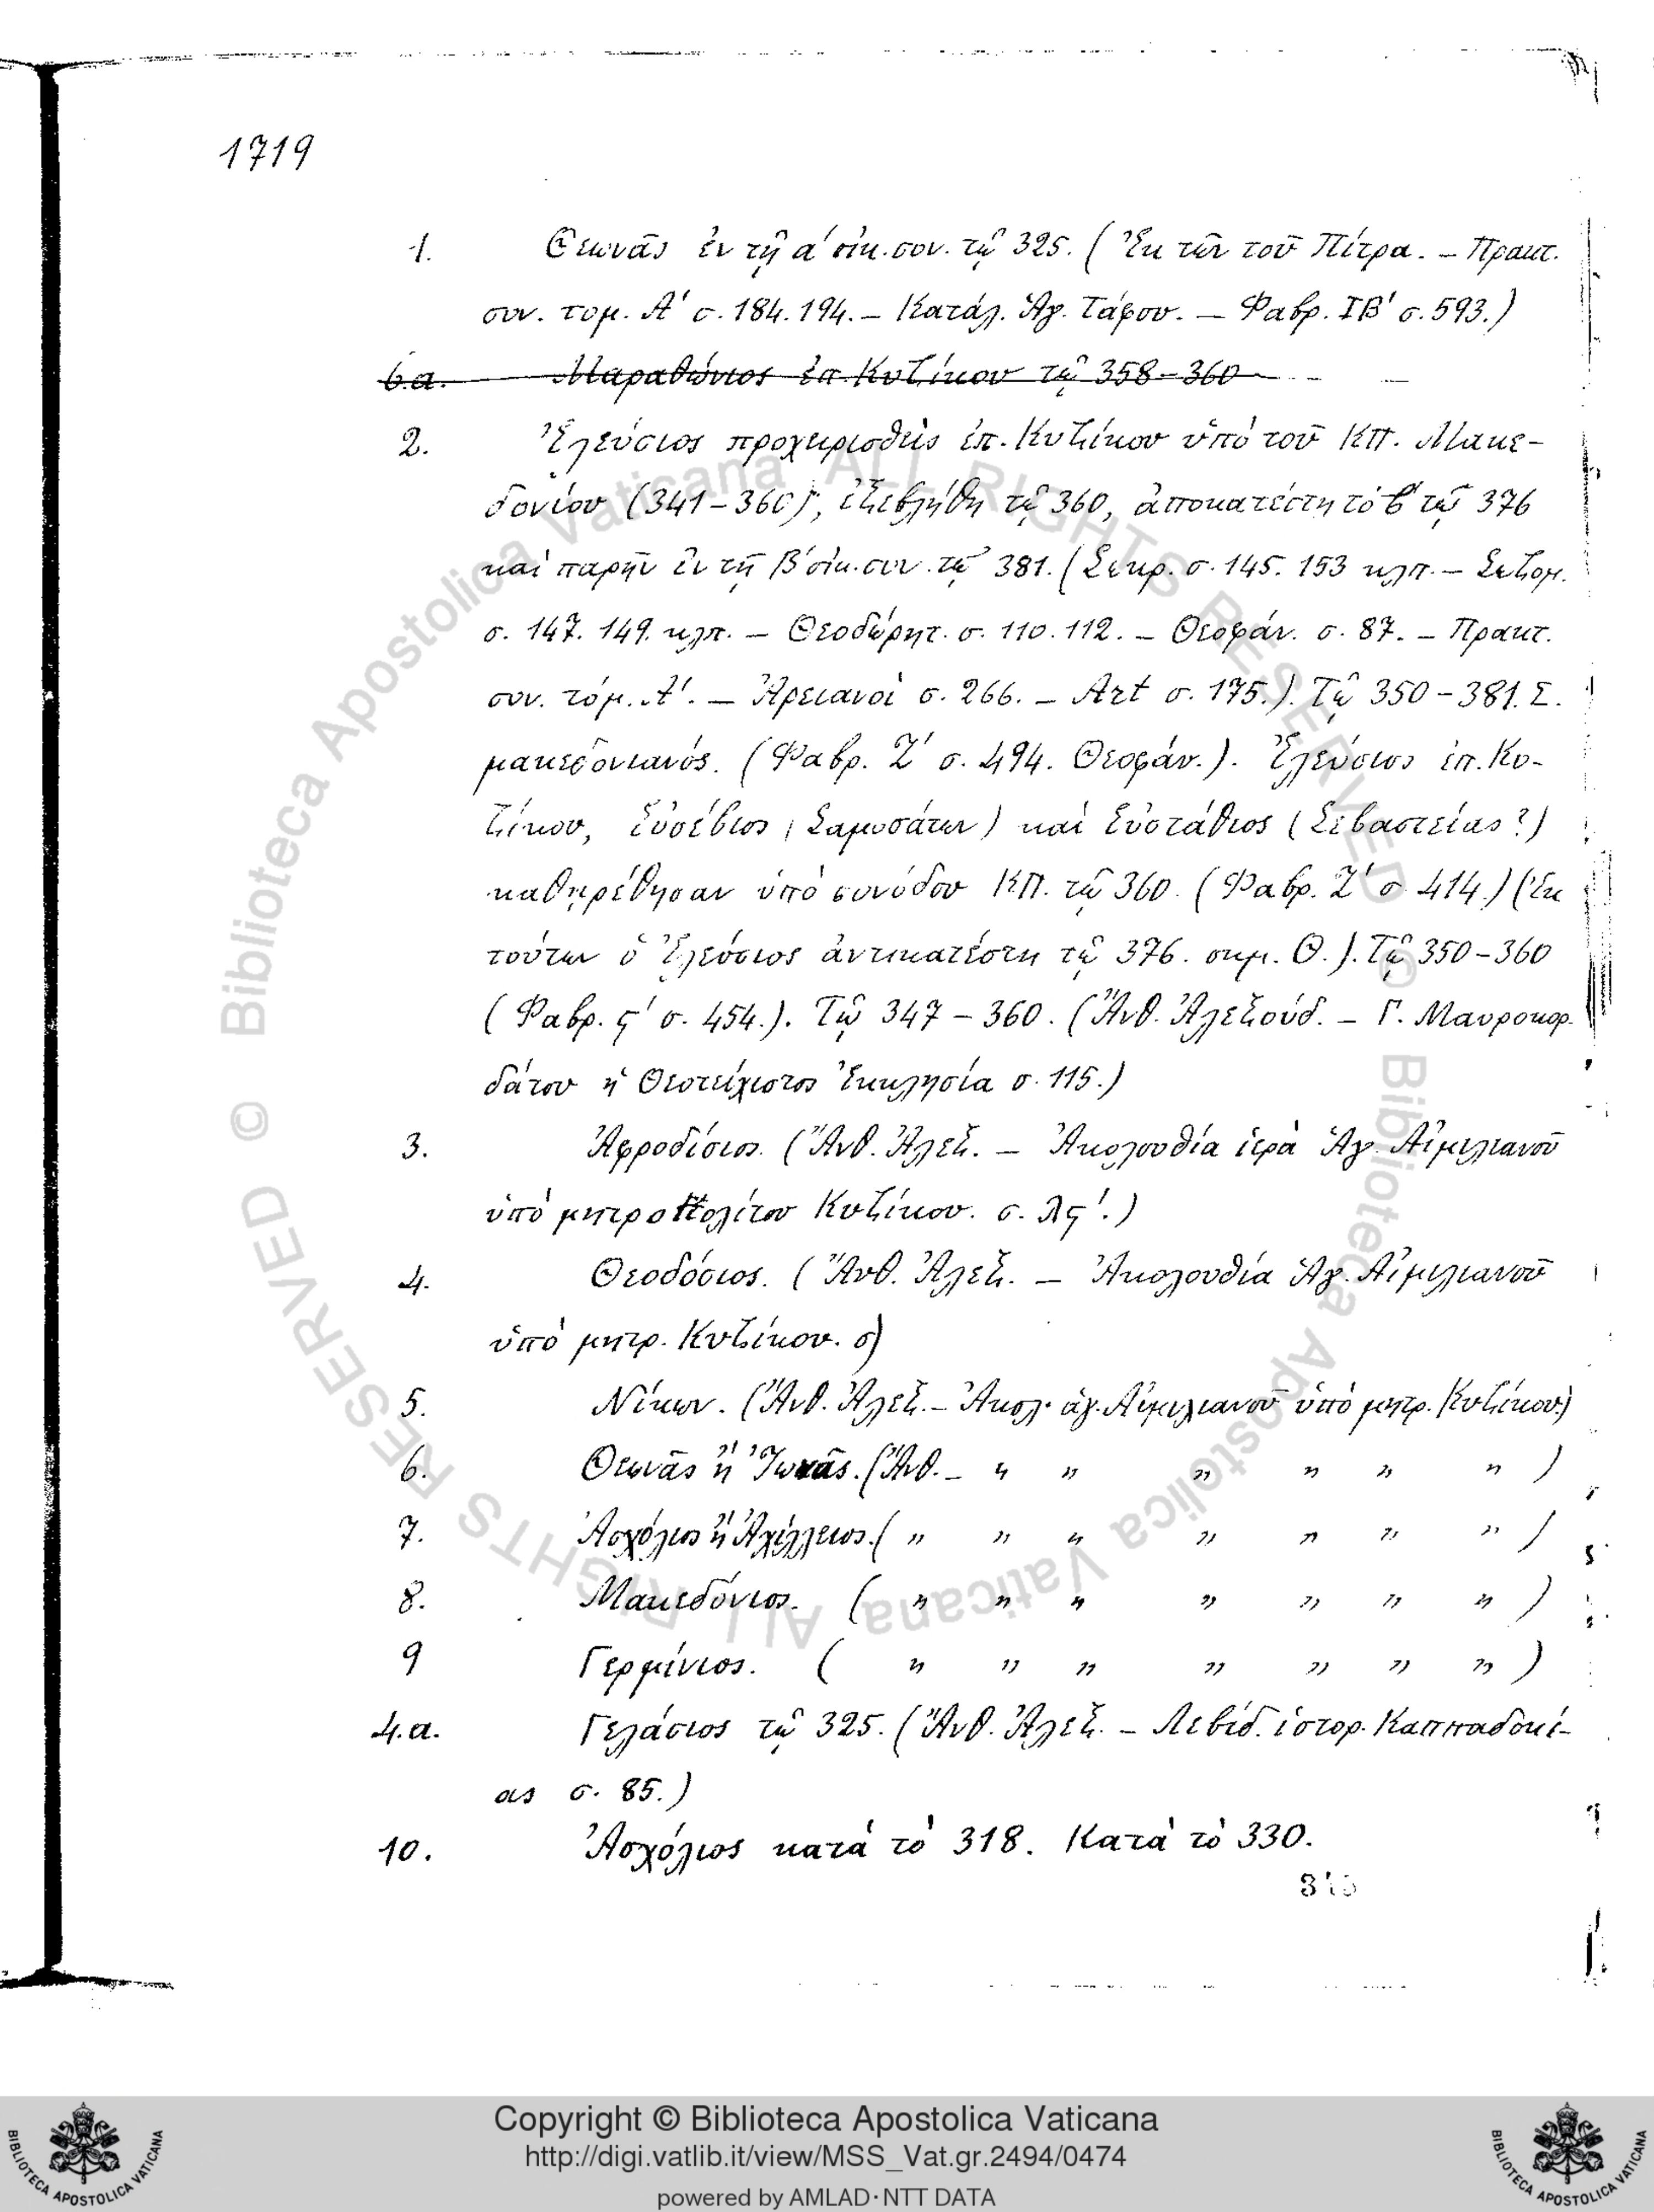 1719
1. Θεωνᾶς ἐν τῇ α' οἰκ. συν. τῷ 325. (Ἐκ τῶν τοῦ Πίτρα. – Πρακτ.
συν. τομ. Α' σ. 184. 194. – Κατάλ. Ἁγ. Τάφου. – Φαβρ. ΙΒ' σ. 593.)
6.α. Μαραθώνιος ἐπ. Κυζίκου τῷ 358–360
2. Ἐλεύσιος προχειρισθεὶς ἐπ. Κυζίκου ὑπὸ τοῦ ΚΠ. Μακε-
δονίου (341–360), ἐξεβλήθη τῷ 360, ἀποκατέστη τὸ β' τῷ 376
καὶ παρῆν ἐν τῇ Β' οἰκ. συν. τῷ 381. (Σωκρ. σ. 145. 153 κλπ. – Σωζομ.
σ. 147. 149. κλπ. – Θεοδώρητ. σ. 110. 112. – Θεοφάν. σ. 87. – Πρακτ.
συν. τόμ. Α'. – Ἀρειανοὶ σ. 266. – Art σ. 175.). Τῷ 350–381. Σ.
μακεδονιανός. (Φαβρ. Ζ' σ. 494. Θεοφάν.). Ἐλεύσιος ἐπ. Κυ-
ζίκου, Εὐσέβιος (Σαμοσάτων) καὶ Εὐστάθιος (Σεβαστείας?)
καθῃρέθησαν ὑπὸ συνόδου ΚΠ. τῷ 360. (Φαβρ. Ζ' σ. 414.) (Ἐκ
τούτων ὁ Ἐλεύσιος ἀντικατέστη τῷ 376. σημ. Θ.). Τῷ 350–360
(Φαβρ. ϛ' σ. 454.). Τῷ 347–360. (Ἄνθ. Ἀλεξούδ. – Γ. Μαυροκορ-
δάτου ἡ Θεοτείχιστος Ἐκκλησία σ. 115.)
3. Ἀφροδίσιος. (Ἄνθ. Ἀλεξ. – Ἀκολουθία ἱερὰ Ἁγ. Αἰμιλιανοῦ
ὑπὸ μητροπολίτου Κυζίκου. σ. λϛ'.)
4. Θεοδόσιος. (Ἄνθ. Ἀλεξ. – Ἀκολουθία Ἁγ. Αἰμιλιανοῦ
ὑπὸ μητρ. Κυζίκου. σ)
5. Νίκων. (Ἄνθ. Ἀλεξ. – Ἀκολ. ἁγ. Αἰμιλιανοῦ ὑπὸ μητρ. Κυζίκου.)
6. Θεωνᾶς ἢ Ἰωνᾶς. (Ἄνθ. – " " " " " " )
7. Ἀσχόλιος ἢ Ἀχίλλειος. ( " " " " " " " )
8. Μακεδόνιος. ( " " " " " " " )
9 Γερμίνιος. ( " " " " " " " )
4.α. Γελάσιος τῷ 325. (Ἄνθ. Ἀλεξ. – Λεβίδ. ἱστορ. Καππαδοκί-
ας σ. 85.)
10. Ἀσχόλιος κατὰ τὸ 318. Κατὰ τὸ 330.
© Biblioteca Apostolica Vaticana ALL RIGHTS RESERVED © Biblioteca Apostolica Vaticana ALL RIGHTS RESERVED
Copyright © Biblioteca Apostolica Vaticana
http://digi.vatlib.it/view/MSS_Vat.gr.2494/0474
powered by AMLAD·NTT DATA
BIBLIOTECA APOSTOLICA VATICANA
BIBLIOTECA APOSTOLICA VATICANA